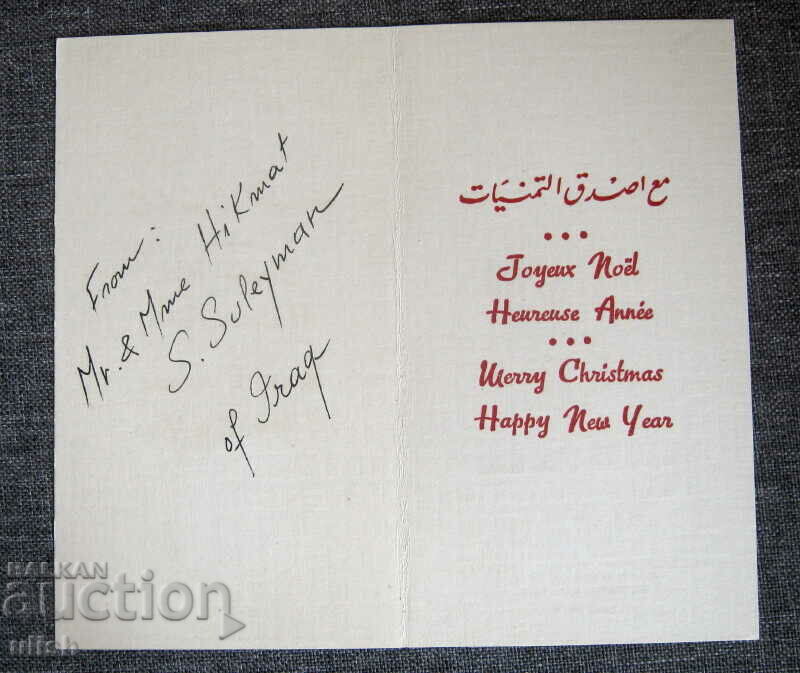 From:
Mr. & Mme Hikmat
S. Suleyman
of Iraq
مع اصدق التمنيات
Joyeux Noël
Heureuse Année
Merry Christmas
Happy New Year
BALKAN
auction
ulfsb